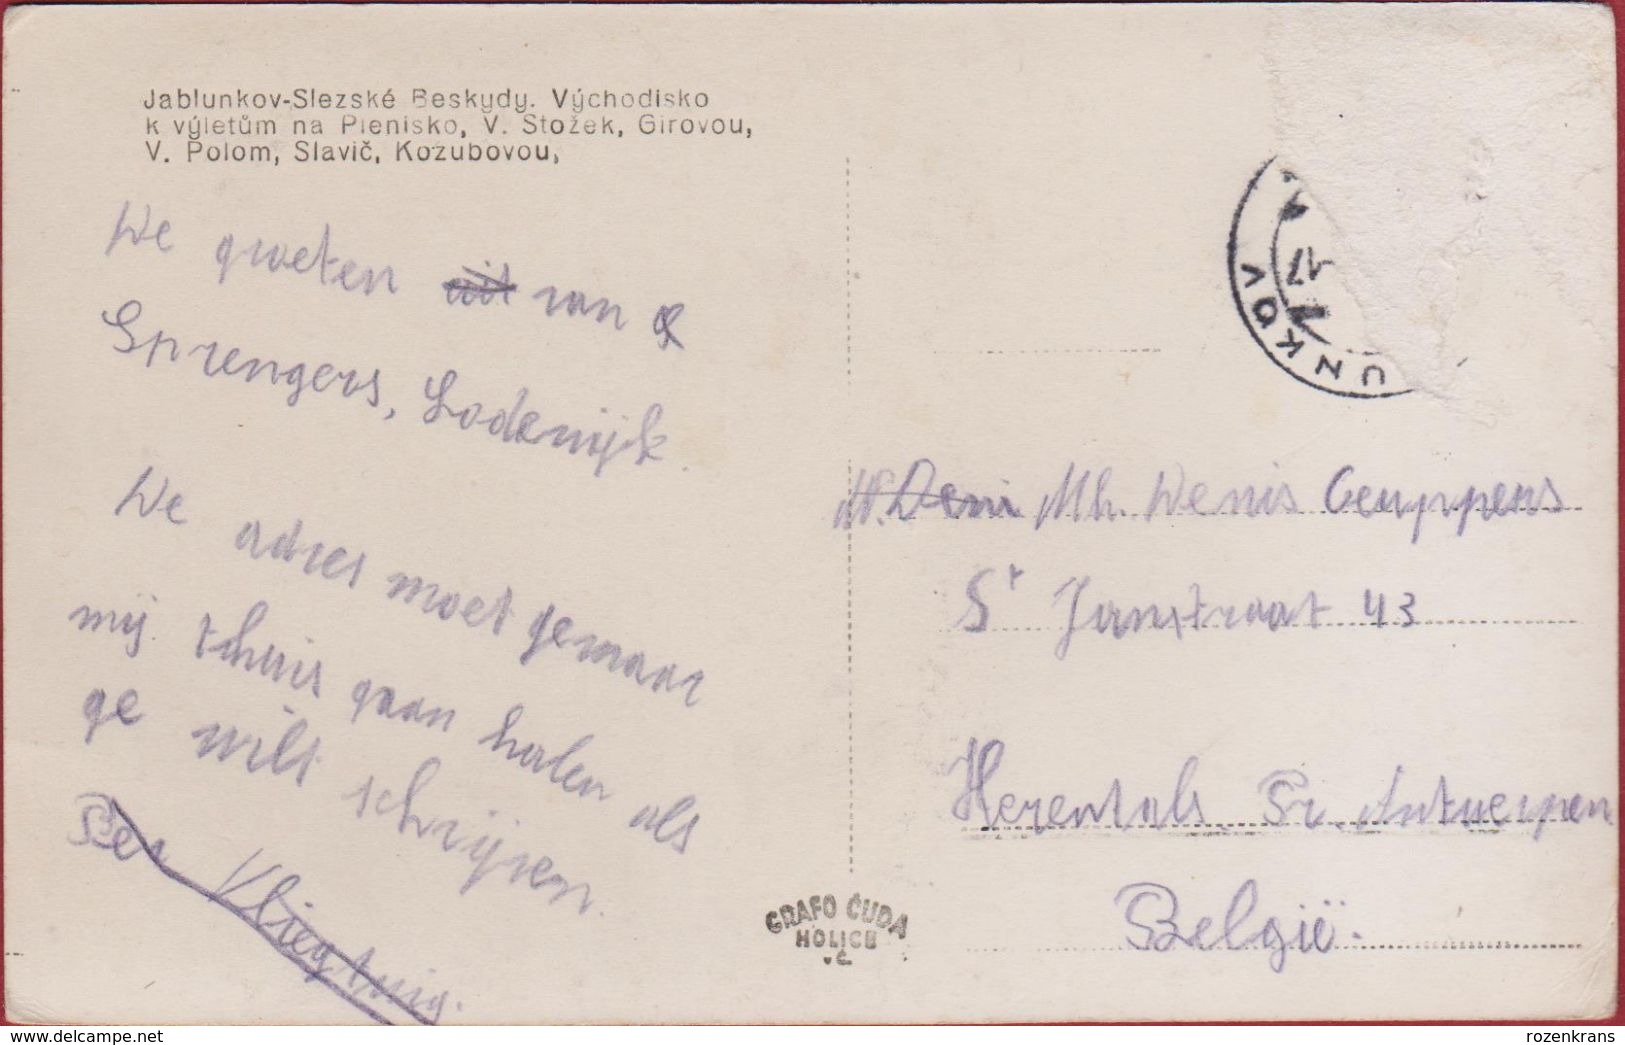 Jablunkov-Slezské Beskydy. Východisko
k výletům na Plenisko, V. Stožek, Girovou,
V. Polom, Slavič, Kozubovou,
We groeten uit van &
Sprengers, Lodewijk.
We adres moet gemaar
mij thuis gaan halen als
ge wilt schrijven.
Per Vliegtuig.
UNKOV
17
Deni Mh. Denis Ceuppens
St Janstraat 43
Herentals. Pr. Antwerpen
België.
GRAFO ČUDA
HOLICE
rozenkrans